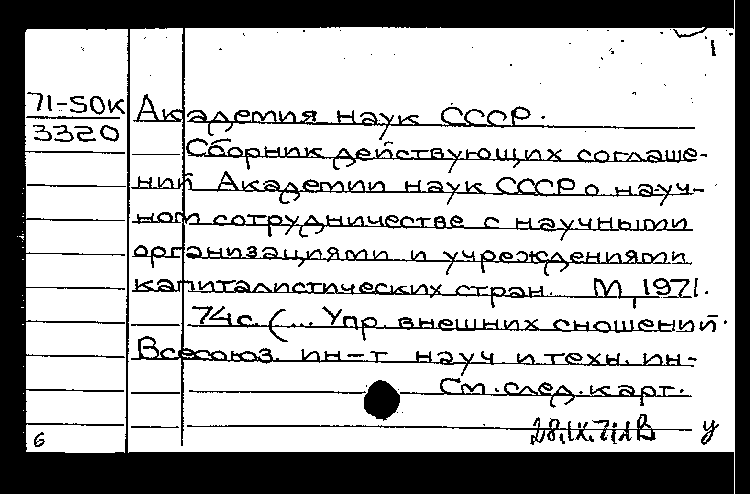 1
71-50к Академия наук СССР.
3320
Сборник действующих соглаше-
ний Академии наук СССР о науч-
ном сотрудничестве с научными
организациями и учреждениями
капиталистических стран. М, 1971.
74с. (... Упр. внешних сношений.
Всесоюз. ин-т науч и техн. ин-
См. след. карт.
28.IX.71 у
6